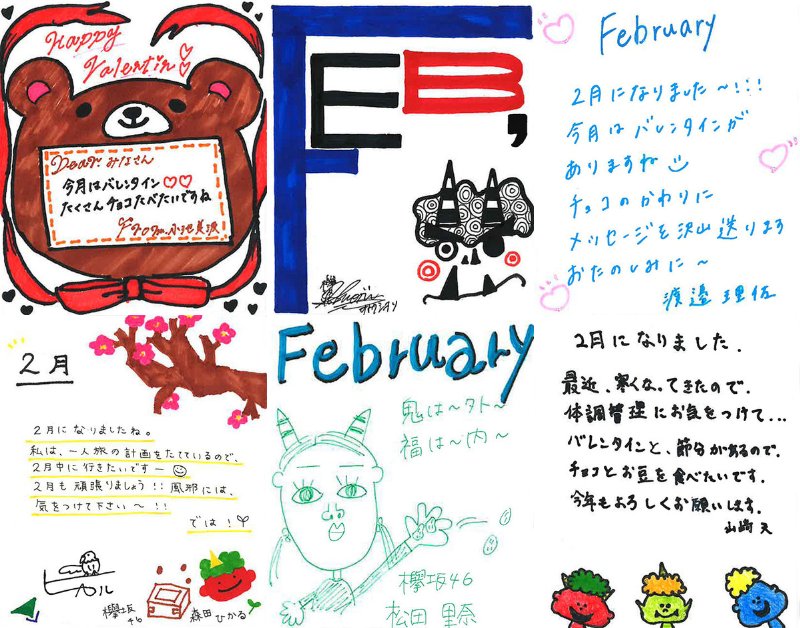 Happy
Valentin
Dear. みなさん
今月はバレンタイン♡♡
たくさんチョコたべたいですね
From. 小池美波
FEB,
February
2月になりました〜!!!
今月はバレンタインが
ありますね
チョコのかわりに
メッセージを沢山送ります
おたのしみに〜
渡邉理佐
2月
2月になりましたね。
私は、一人旅の計画をたてているので、
2月中に行きたいですー
2月も頑張りましょう!! 風邪には、
気をつけて下さい〜!!
では!
ヒカル
欅坂46
森田ひかる
February
鬼は〜外〜
福は〜内〜
欅坂46
松田里奈
2月になりました.
最近、寒くなってきたので、
体調管理にお気をつけて...
バレンタインと、節分があるので、
チョコとお豆を食べたいです。
今年もよろしくお願いします。
山﨑天